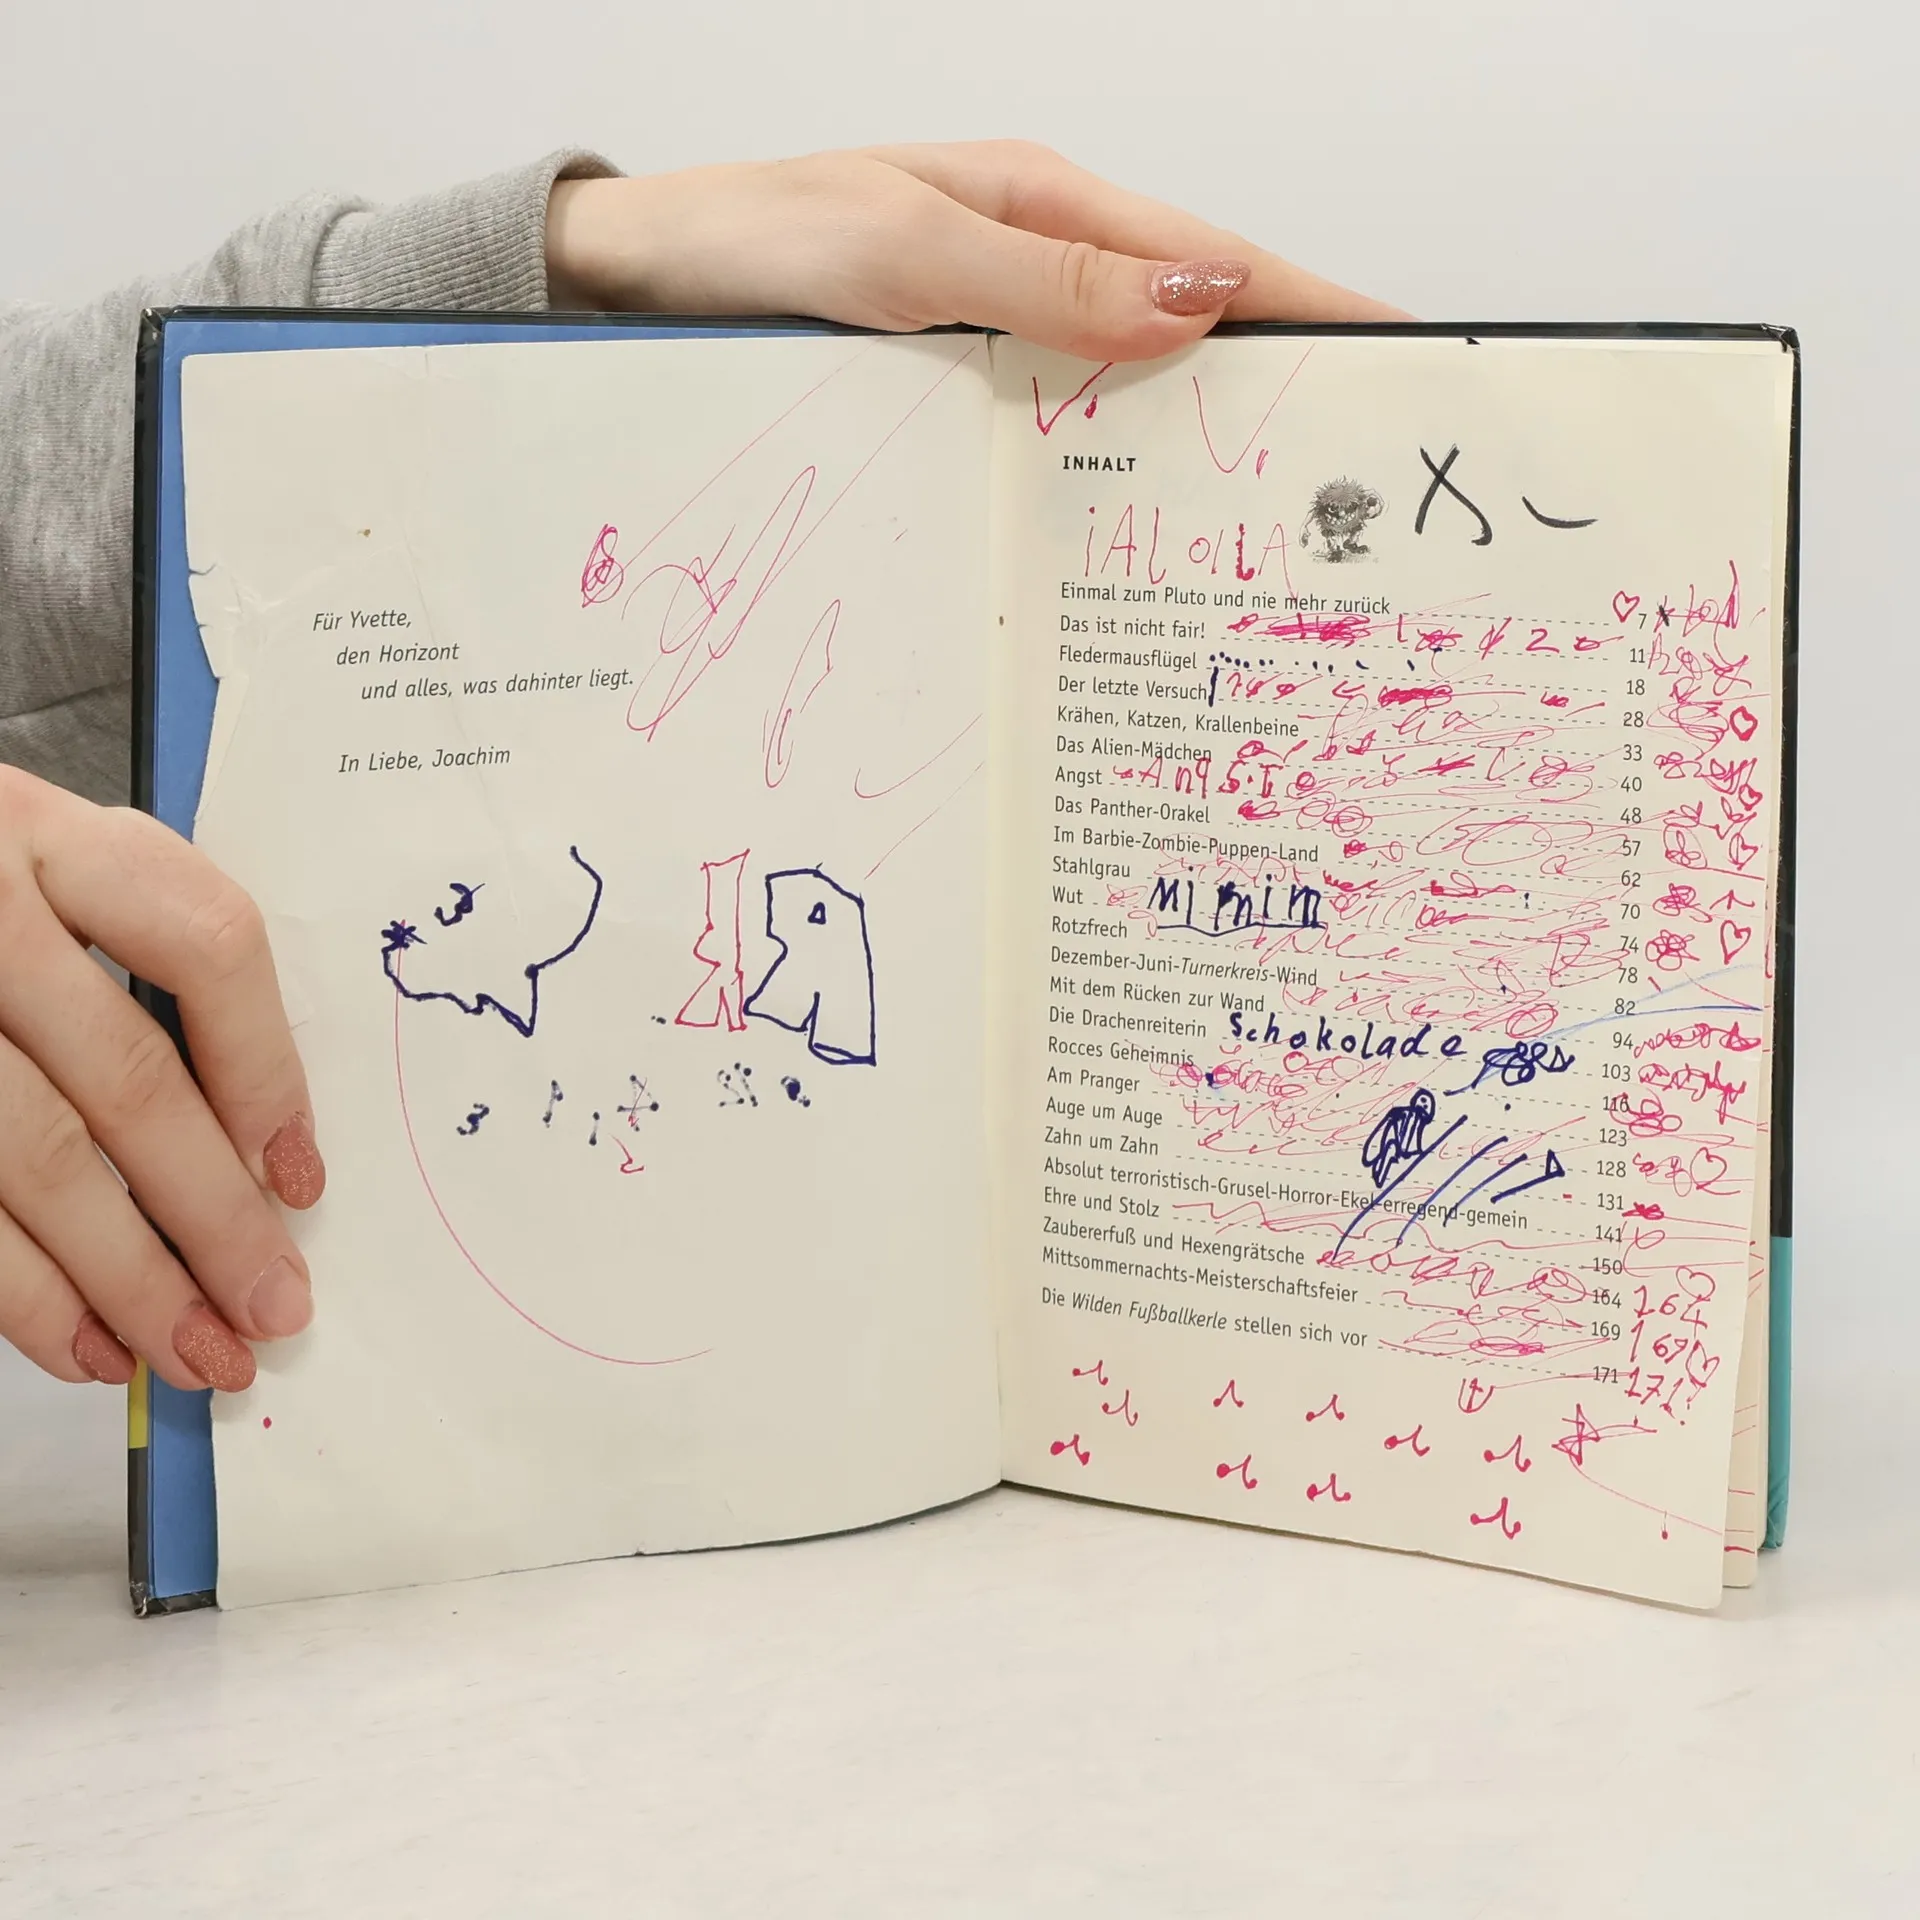 Für Yvette,
den Horizont
und alles, was dahinter liegt.
In Liebe, Joachim
V. V.
INHALT
X
Einmal zum Pluto und nie mehr zurück 7
Das ist nicht fair! 11
Fledermausflügel 18
Der letzte Versuch 28
Krähen, Katzen, Krallenbeine 33
Das Alien-Mädchen 40
Angst AngST 48
Das Panther-Orakel 57
Im Barbie-Zombie-Puppen-Land 62
Stahlgrau 70
Wut Mimim 74
Rotzfrech 78
Dezember-Juni-Turnerkreis-Wind 82
Mit dem Rücken zur Wand 94
Die Drachenreiterin Schokolade 103
Rocces Geheimnis 116
Am Pranger 123
Auge um Auge 128
Zahn um Zahn 131
Absolut terroristisch-Grusel-Horror-Ekel-erregend-gemein 141
Ehre und Stolz 150
Zaubererfuß und Hexengrätsche 164 164
Mittsommernachts-Meisterschaftsfeier 169 169
Die Wilden Fußballkerle stellen sich vor 171 171